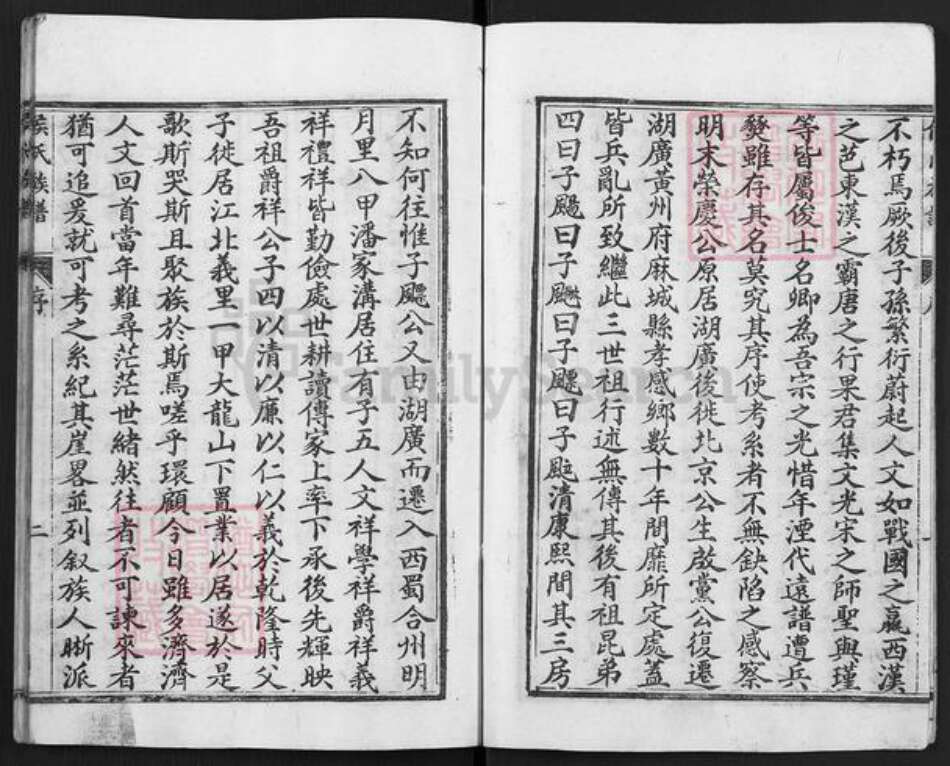 不朽焉厥後子孫繁衍蔚起人文如戰國之嬴西漢
之芭東漢之霸唐之行果君集文光宋之師聖與瑾
等皆屬俊士名卿為吾宗之光惜年湮代遠譜遭兵
燹雖存其名莫究其序使考系者不無缺陷之感察
明末榮慶公原居湖廣後徙北京公生啟黨公復遷
湖廣黃州府麻城縣孝感鄉數十年間靡所定處蓋
皆兵亂所致繼此三世祖行述無傳其後有祖昆弟
四曰子颺曰子颽曰子飃曰子颩清康熙間其三房
不知何往惟子飃公又由湖廣而遷入西蜀合州明
月里八甲潘家溝居住有子五人文祥學祥爵祥義
祥禮祥皆勤儉處世耕讀傳家上率下承後先輝映
吾祖爵祥公子四以清以廉以仁以義於乾隆時父
子徙居江北義里一甲大龍山下置業以居遂於是
歌斯哭斯且聚族於斯焉嗟乎環顧今日雖多濟濟
人文回首當年難尋茫茫世緒然往者不可諫來者
猶可追爰就可考之系紀其崖畧並列叙族人晰派
侯氏族譜 序 二
FamilySearch